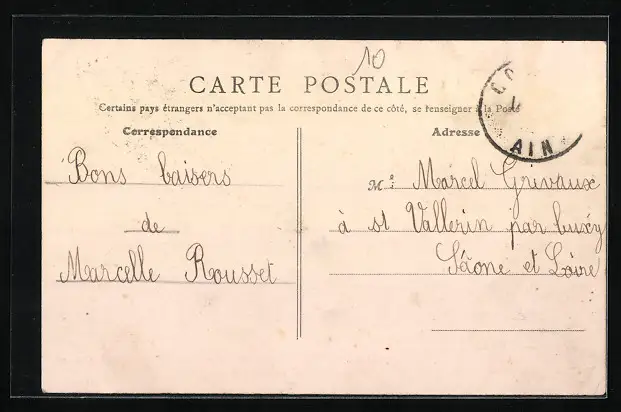 10
CARTE POSTALE
Certains pays étrangers n'acceptant pas la correspondance de ce côté, se renseigner à la Poste
Correspondance
Adresse
AIN
Bons baisers
de
Marcelle Rousset
M. Marcel Grivaux
à st Vallerin par buxy
Sâone et Loire